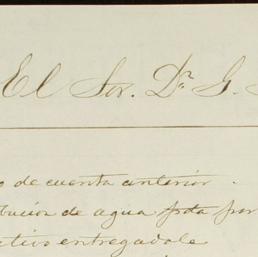 El Sor. Dn. G.
o de cuenta anterior.
bucion de agua pda por
ctivo entregadole